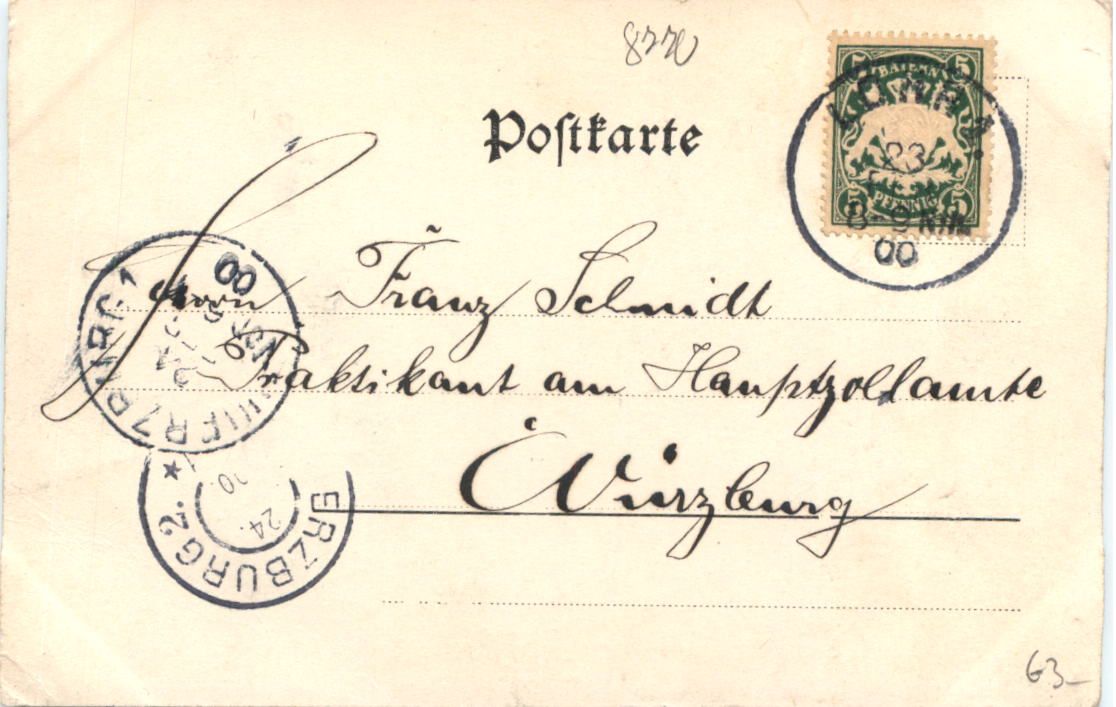 8770
Postkarte
5 BAYERN 5
5 PFENNIG 5
23
8-9 Nm.
00
Herrn Franz Schmidt
Praktikant am Hauptzollamte
Würzburg
WUERZBURG 1
24
00
ERZBURG 2.
24.
63-